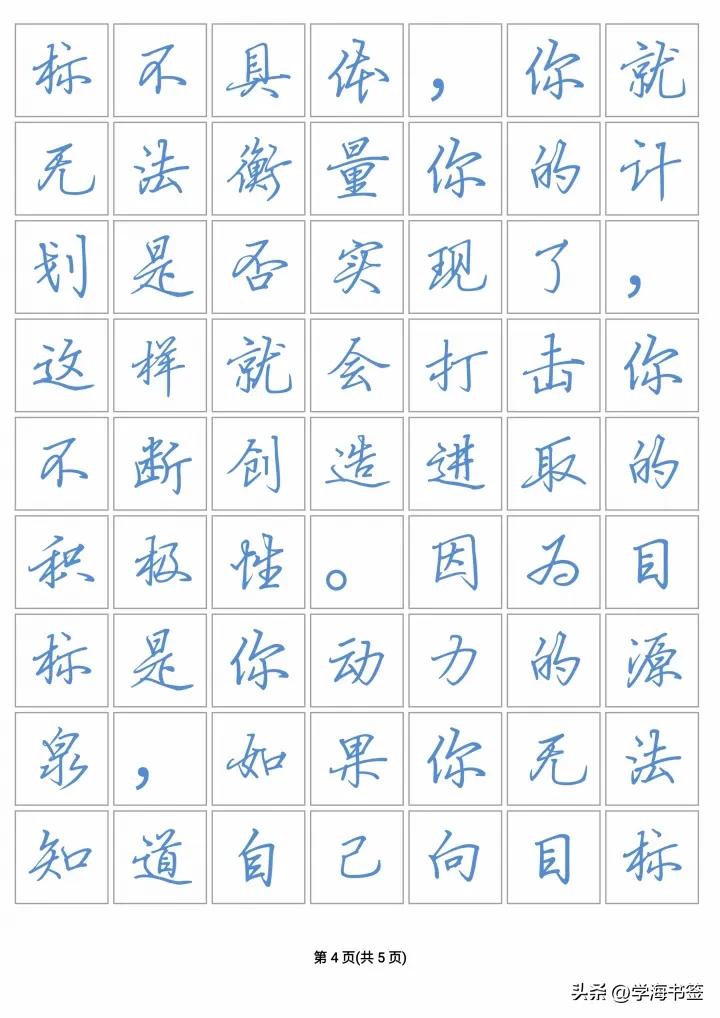 标不具体，你就
无法衡量你的计
划是否实现了，
这样就会打击你
不断创造进取的
积极性。因为目
标是你动力的源
泉，如果你无法
知道自己向目标
第4页(共5页)
头条 @学海书签